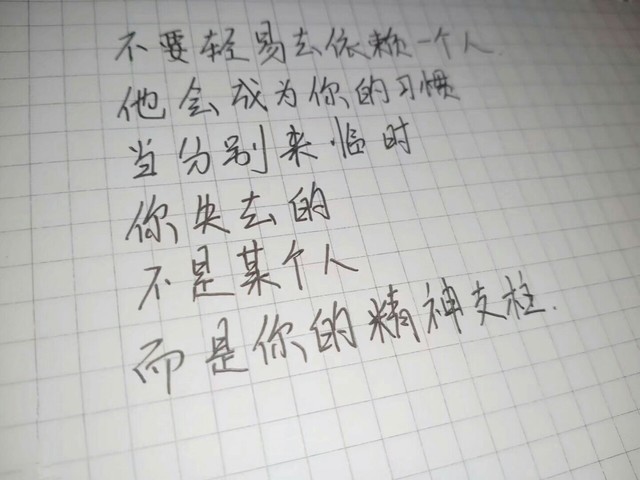 不要轻易去依赖一个人.
他会成为你的习惯
当分别来临时
你失去的
不是某个人
而是你的精神支柱.